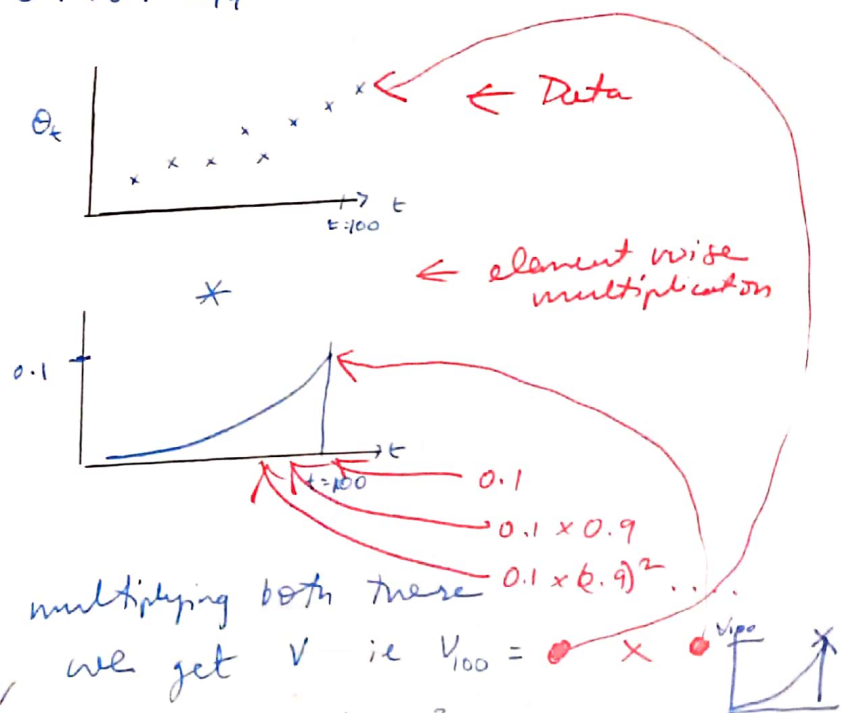 θt
← Data
t
t=100
*
← element wise
multiplication
0.1
t
t=100
0.1
0.1 x 0.9
0.1 x (0.9)² ....
multiplying both these
we get V ie V100 = x
V100